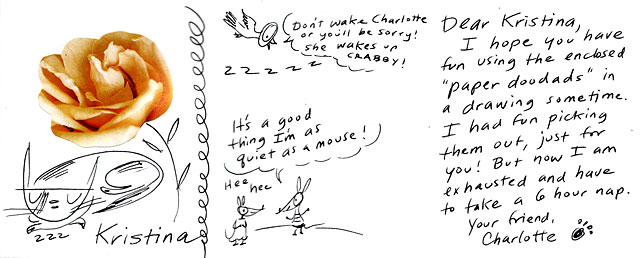 zzz
Kristina
Don't wake Charlotte
or you'll be sorry!
she wakes up
CRABBY!
z z z z z
It's a good
thing I'm as
quiet as a mouse!
Hee
hee
Dear Kristina,
I hope you have
fun using the enclosed
"paper doodads" in
a drawing sometime.
I had fun picking
them out, just for
you! But now I am
exhausted and have
to take a 6 hour nap.
Your friend,
Charlotte